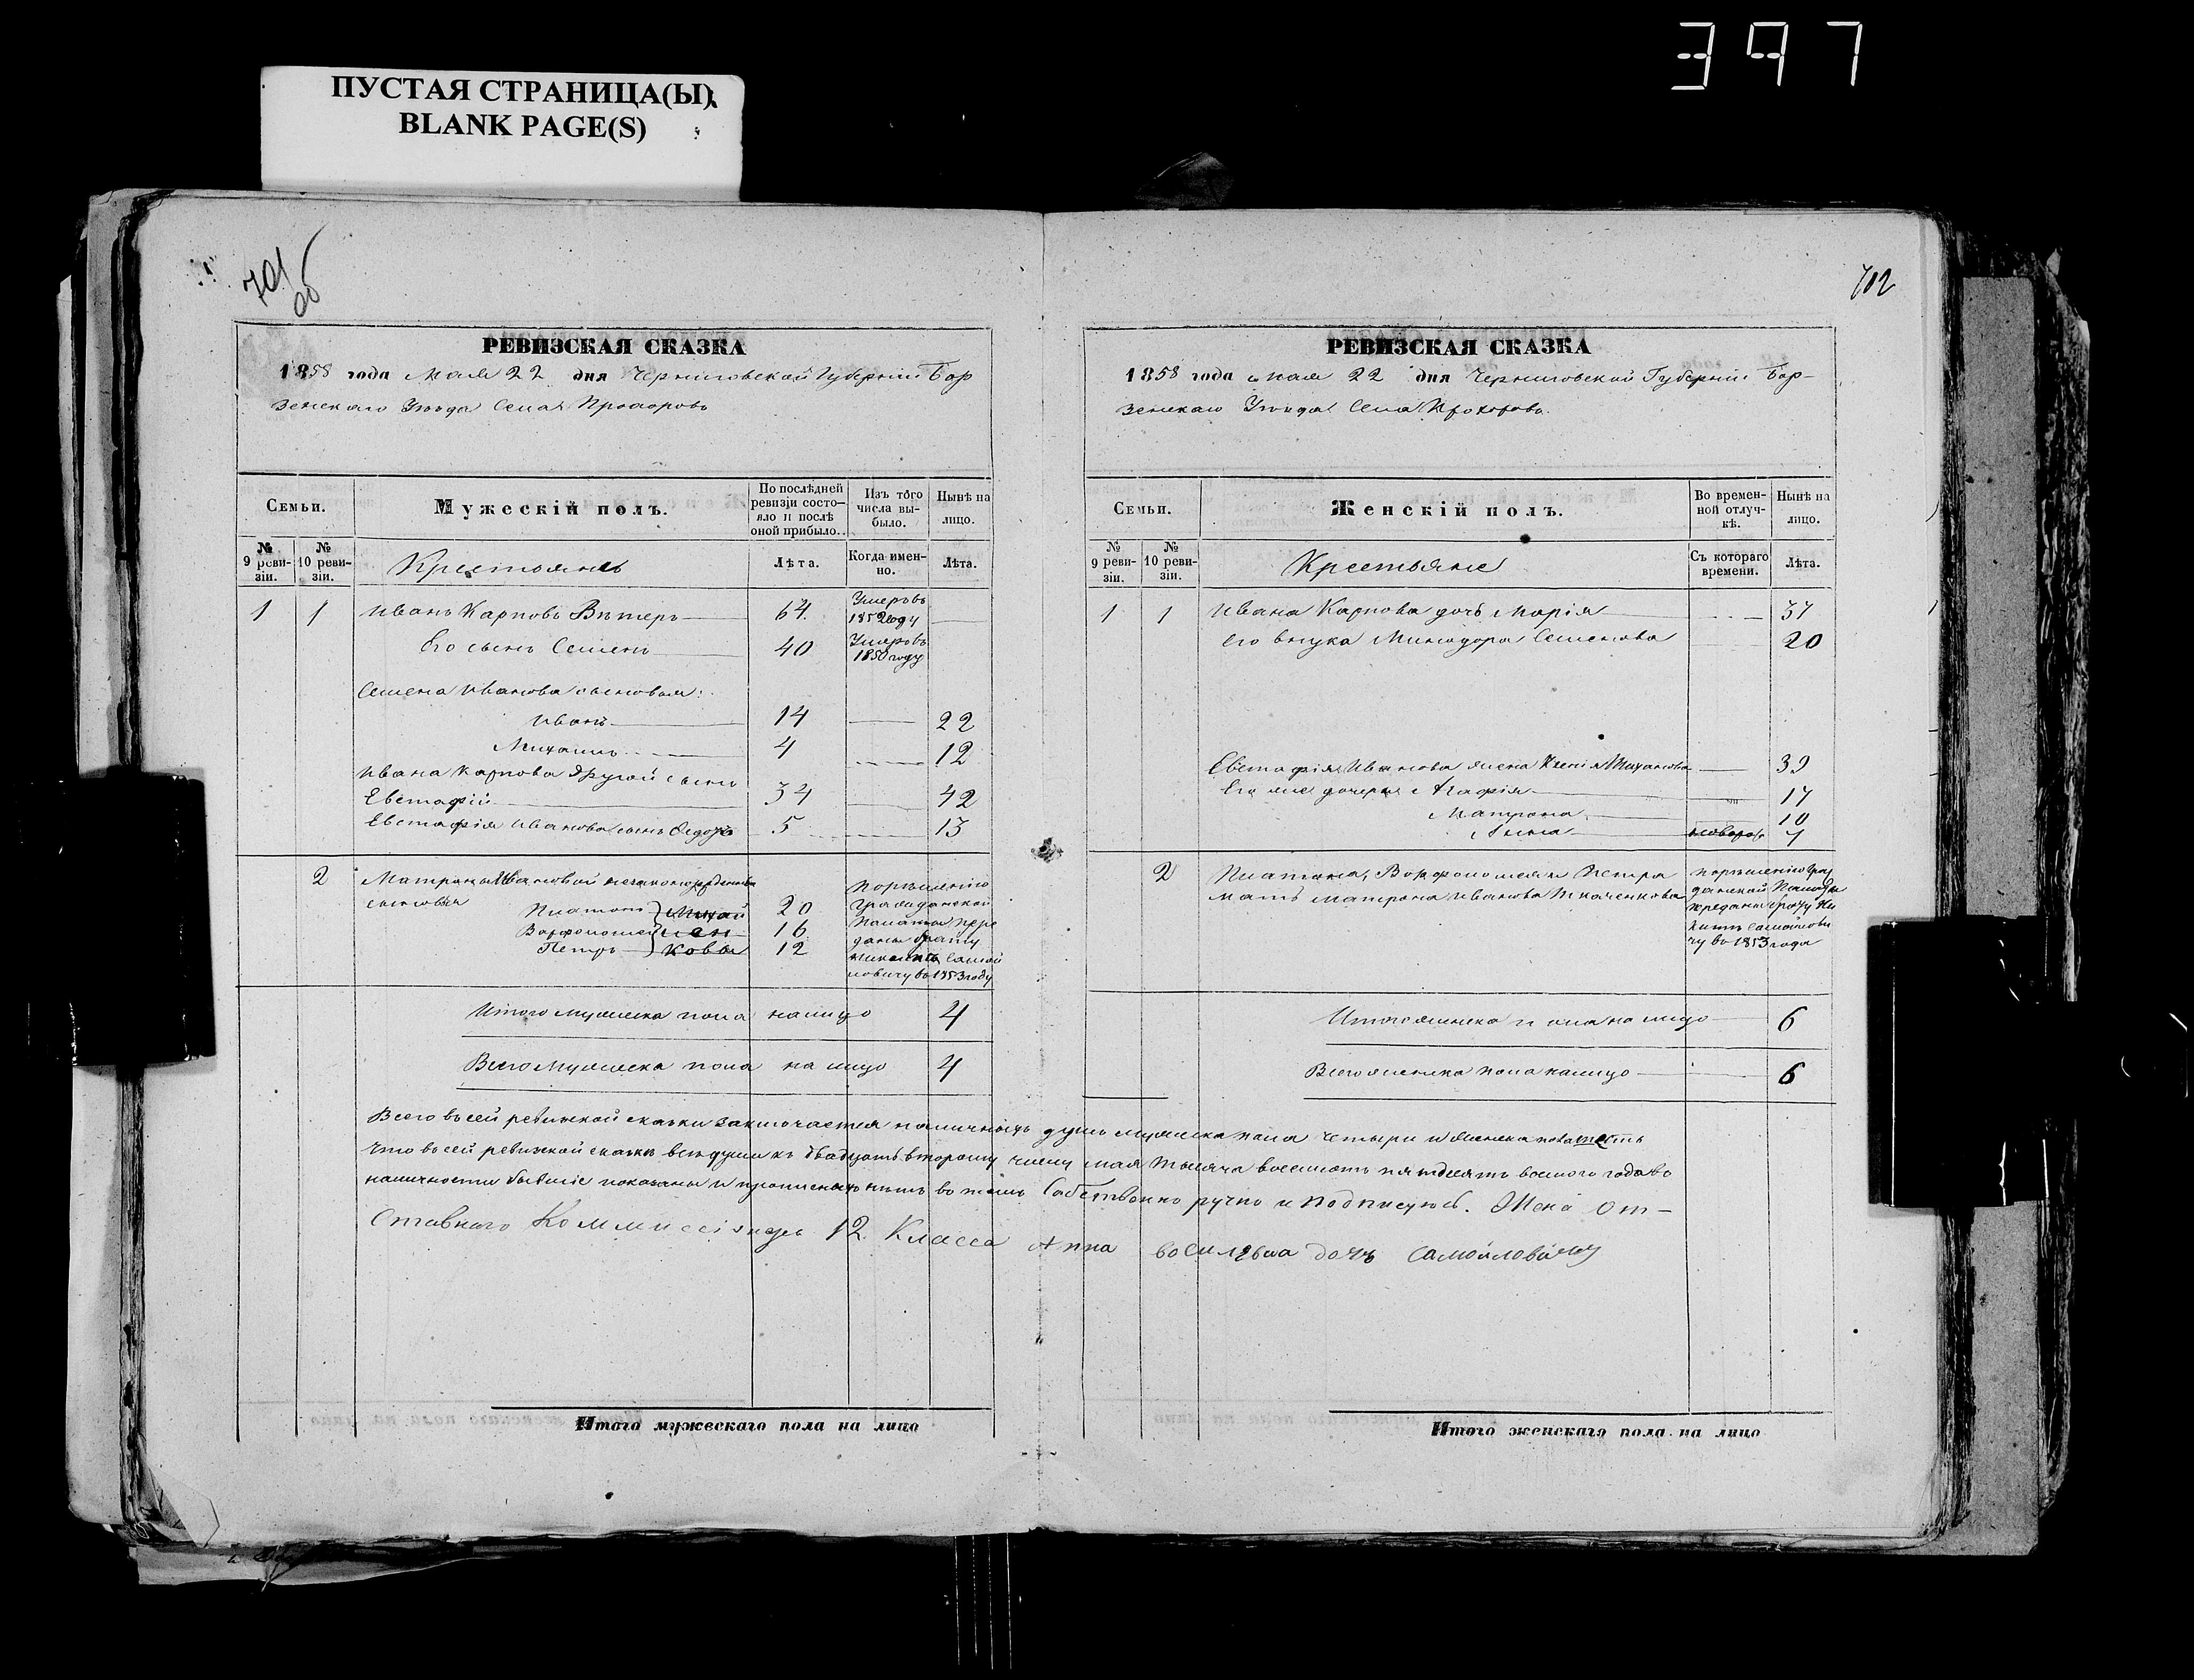 397
ПУСТАЯ СТРАНИЦА(Ы)
BLANK PAGE(S)
701 об
РЕВИЗСКАЯ СКАЗКА
1858 года мая 22 дня Черниговской Губерніи Бор
зенскаго Уѣзда Села Прохоровъ
Семьи.
Мужескій полъ.
По послѣдней ревизіи состояло и послѣ оной прибыло.
Изъ того числа выбыло.
Нынѣ на лицо.
№ 9 ревизіи.
№ 10 ревизіи.
Крестьянъ
Лѣта.
Когда именно.
Лѣта.
1 1 Иванъ Карповъ Вѣтеръ 64 Умеръ въ 1852 году
Его сынъ Семенъ 40 Умеръ въ 1850 году
Семена Иванова сыновья:
Иванъ 14 22
Михаилъ 4 12
Ивана Карпова другой сынъ
Евстафій 34 42
Евстафія Иванова сынъ Федоръ 5 13
2 Матрены Ивановой незаконорожденные
сыновья
Платонъ 20
Варфоломей 16
Петръ 12
По рѣшенію
Гражданской
Палаты пере
даны брату
Никитѣ Самой
ловичу въ 1853 году
Итого мужеска пола на лицо 4
Всего мужеска пола на лицо 4
702
РЕВИЗСКАЯ СКАЗКА
1858 года мая 22 дня Черниговской Губерніи Бор-
зенскаго Уѣзда Села Прохорова.
Семьи.
Женскій полъ.
Во временной отлучкѣ.
Нынѣ на лицо.
№ 9 ревизіи.
№ 10 ревизіи.
Крестьяне
Съ котораго времени.
Лѣта.
1 1 Ивана Карпова дочь Марія 37
Его внука Минодора Семенова 20
Евстафія Иванова жена Ксенія Михайлова 39
Его же дочери Агафія 17
Матрона 10
Анна 7
2 Платона, Варфоломея и Петра
мать Матрона Иванова Ткаченкова
По рѣшенію Граж
данской Палаты
передана брату Ни
китѣ Самойлови
чу въ 1853 года
Итого женска пола на лицо 6
Всего женска пола на лицо 6
Всего въ сей ревизкой сказки заключается наличныхъ душъ мужеска пола четыри и женска пола шесть
Что во сей ревизкой сказки всѣ души къ двадцать второму числу мая тысяча восемсотъ пятдесятъ восмого года во
наличности бывшіе показаны и прописныхъ нѣтъ во томъ Собственно ручно и подписуюсь. Жена От-
ставного Коммиссіонера 12 Класса Анна восилѣва дочь Самойловичъ
Итого мужескаго пола на лицо
Итого женскаго пола на лицо